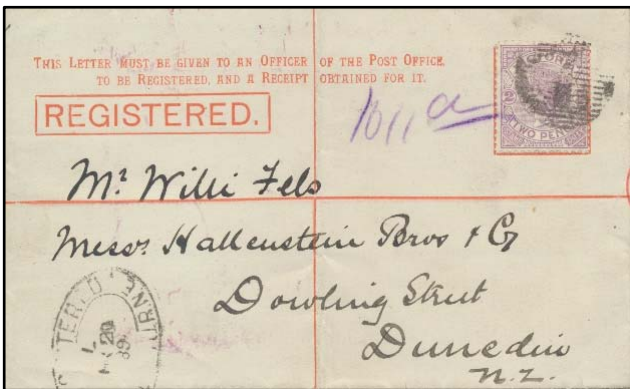 THIS LETTER MUST BE GIVEN TO AN OFFICER OF THE POST OFFICE,
TO BE REGISTERED, AND A RECEIPT OBTAINED FOR IT.
REGISTERED.
TWO PEN
Mr. Willi Fels
Messrs. Hallenstein Bros & Co
Dowling Street
Dunedin
N.Z.